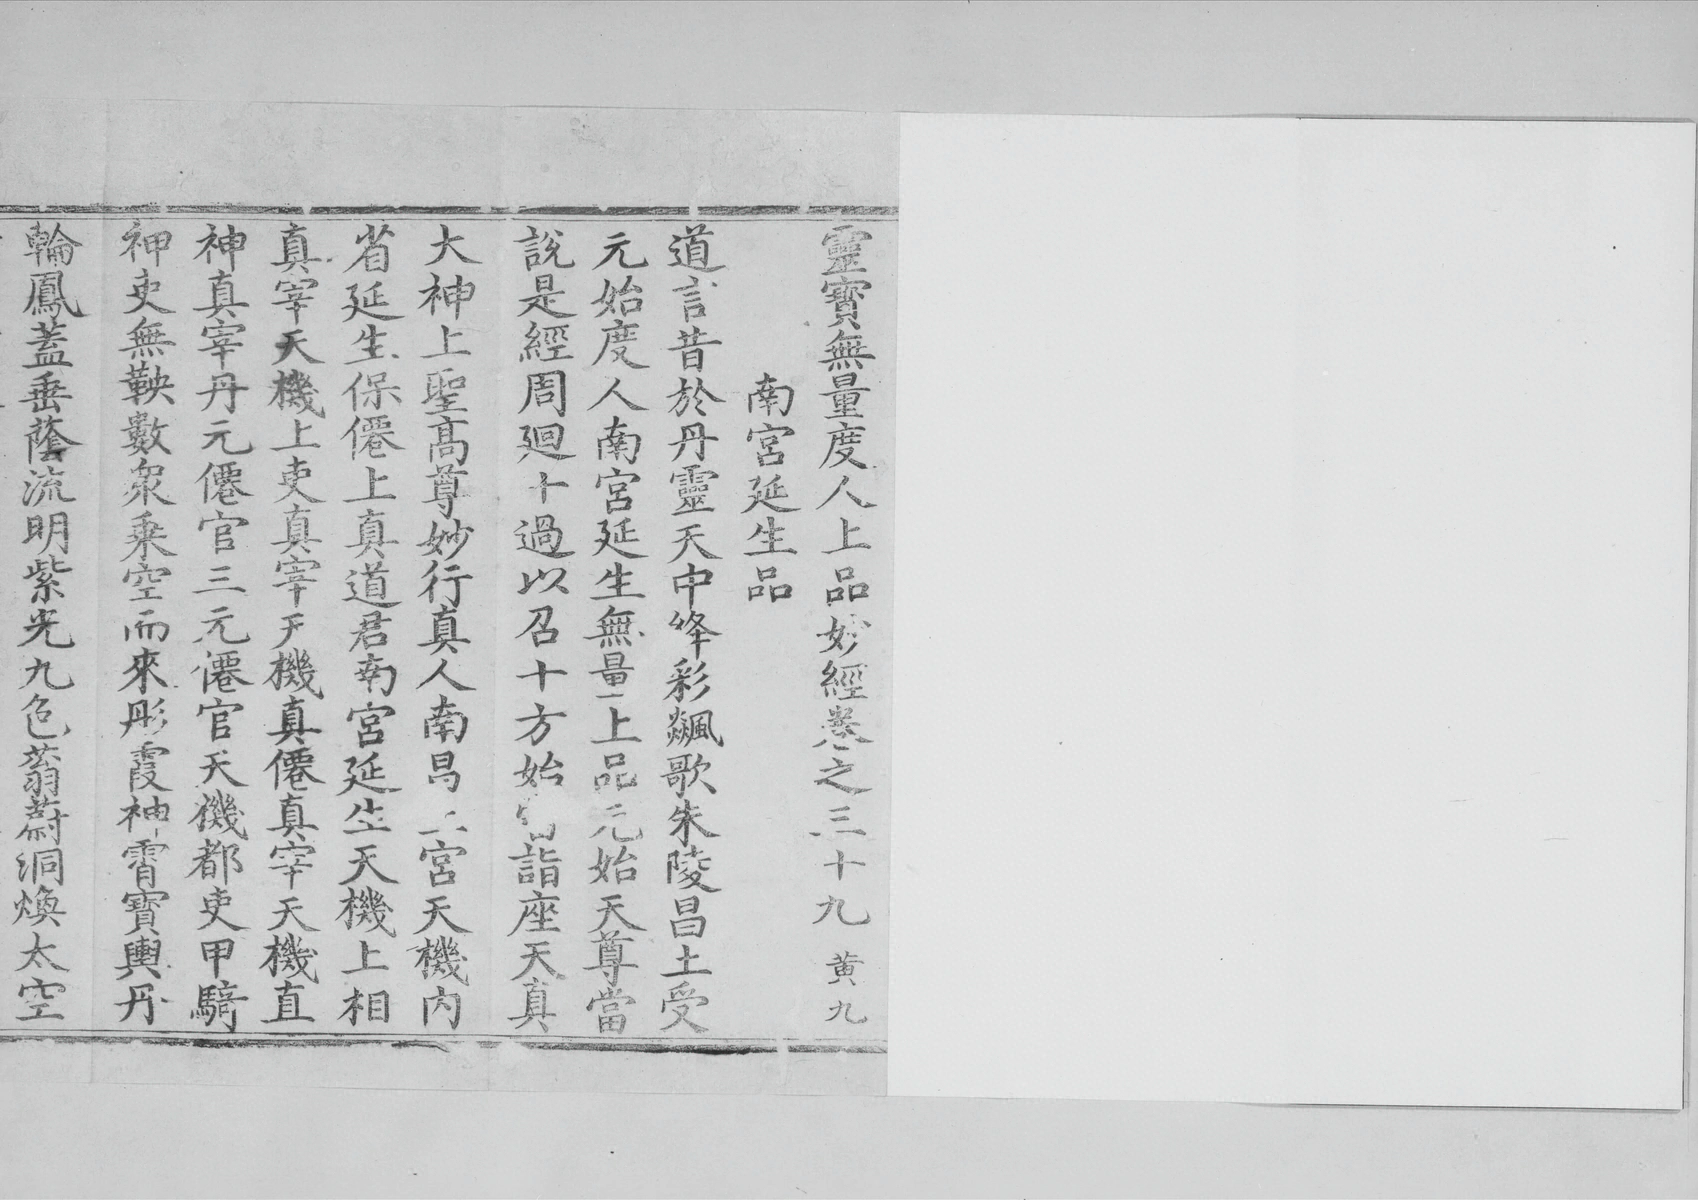 靈寶無量度人上品妙經卷之三十九 黃九
南宮延生品
道言昔於丹靈天中絳彩飆歌朱陵昌土受
元始度人南宮延生無量上品元始天尊當
說是經周廻十過以召十方始當詣座天真
大神上聖高尊妙行真人南昌上宮天機內
省延生保僊上真道君南宮延生天機上相
真宰天機上吏真宰天機真僊真宰天機直
神真宰丹元僊官三元僊官天機都吏甲騎
神吏無鞅數眾乗空而來彤霞神霄寶輿丹
輪鳳蓋垂蔭流明紫光九色蓊蔚洞煥太空